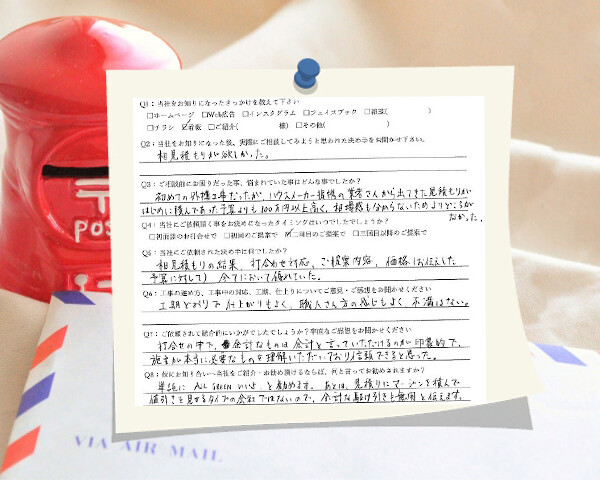 Q1：当社をお知りになったきっかけを教えて下さい
□ホームページ □Web広告 □インスタグラム □フェイスブック □雑誌( )
□チラシ ☑看板 □ご紹介( 様) □その他( )
Q2：当社をお知りになった後、実際にご相談してみようと思われた決め手をお聞かせ下さい。
相見積もりが欲しかった。
Q3：ご相談前にお困りだった事、悩まれていた事はどんな事でしたか？
初めての外構工事だったが、ハウスメーカー指携の業者さんから出てきた見積もりが
はじめに積んであった予算よりも100万円以上高く、相場感も分からないためよりどころが
なかった。
Q4：当社にご依頼頂く事をお決めになったタイミングはいつでしたでしょうか？
□初面談のお打合せで □初回のご提案で ☑二回目のご提案で □三回目以降のご提案で
Q5：当社にご依頼された決め手は何でしたか？
相見積もりの結果、打合わせ対応、ご提案内容、価格(お伝えした
予算に対して) 全てにおいて優れていた。
Q6：工事の進め方、工事中の対応、工期、仕上りについてご意見・ご感想をお聞かせください
工期どおりで仕上がりもよく、職人さん方の感じもよく、不満はない。
Q7：ご依頼されて総合的にいかがでしたでしょうか？率直なご感想をお聞かせください
打合せの中で、余計なものは余計と言っていただけるのが印象的で、
施主が本当に必要なものを理解いただいており信頼できると思った。
Q8：仮にお知り合いへ当社をご紹介・お勧め頂けるならば、何と言ってお勧めされますか？
単純に ALL GREEN いいよ、と勧めます。あとは、見積りにマージンを積んで
値引きを見せるタイプの会社ではないので、余計な駆け引きも無用と伝えます。
〒
POST
VIA AIR MAIL